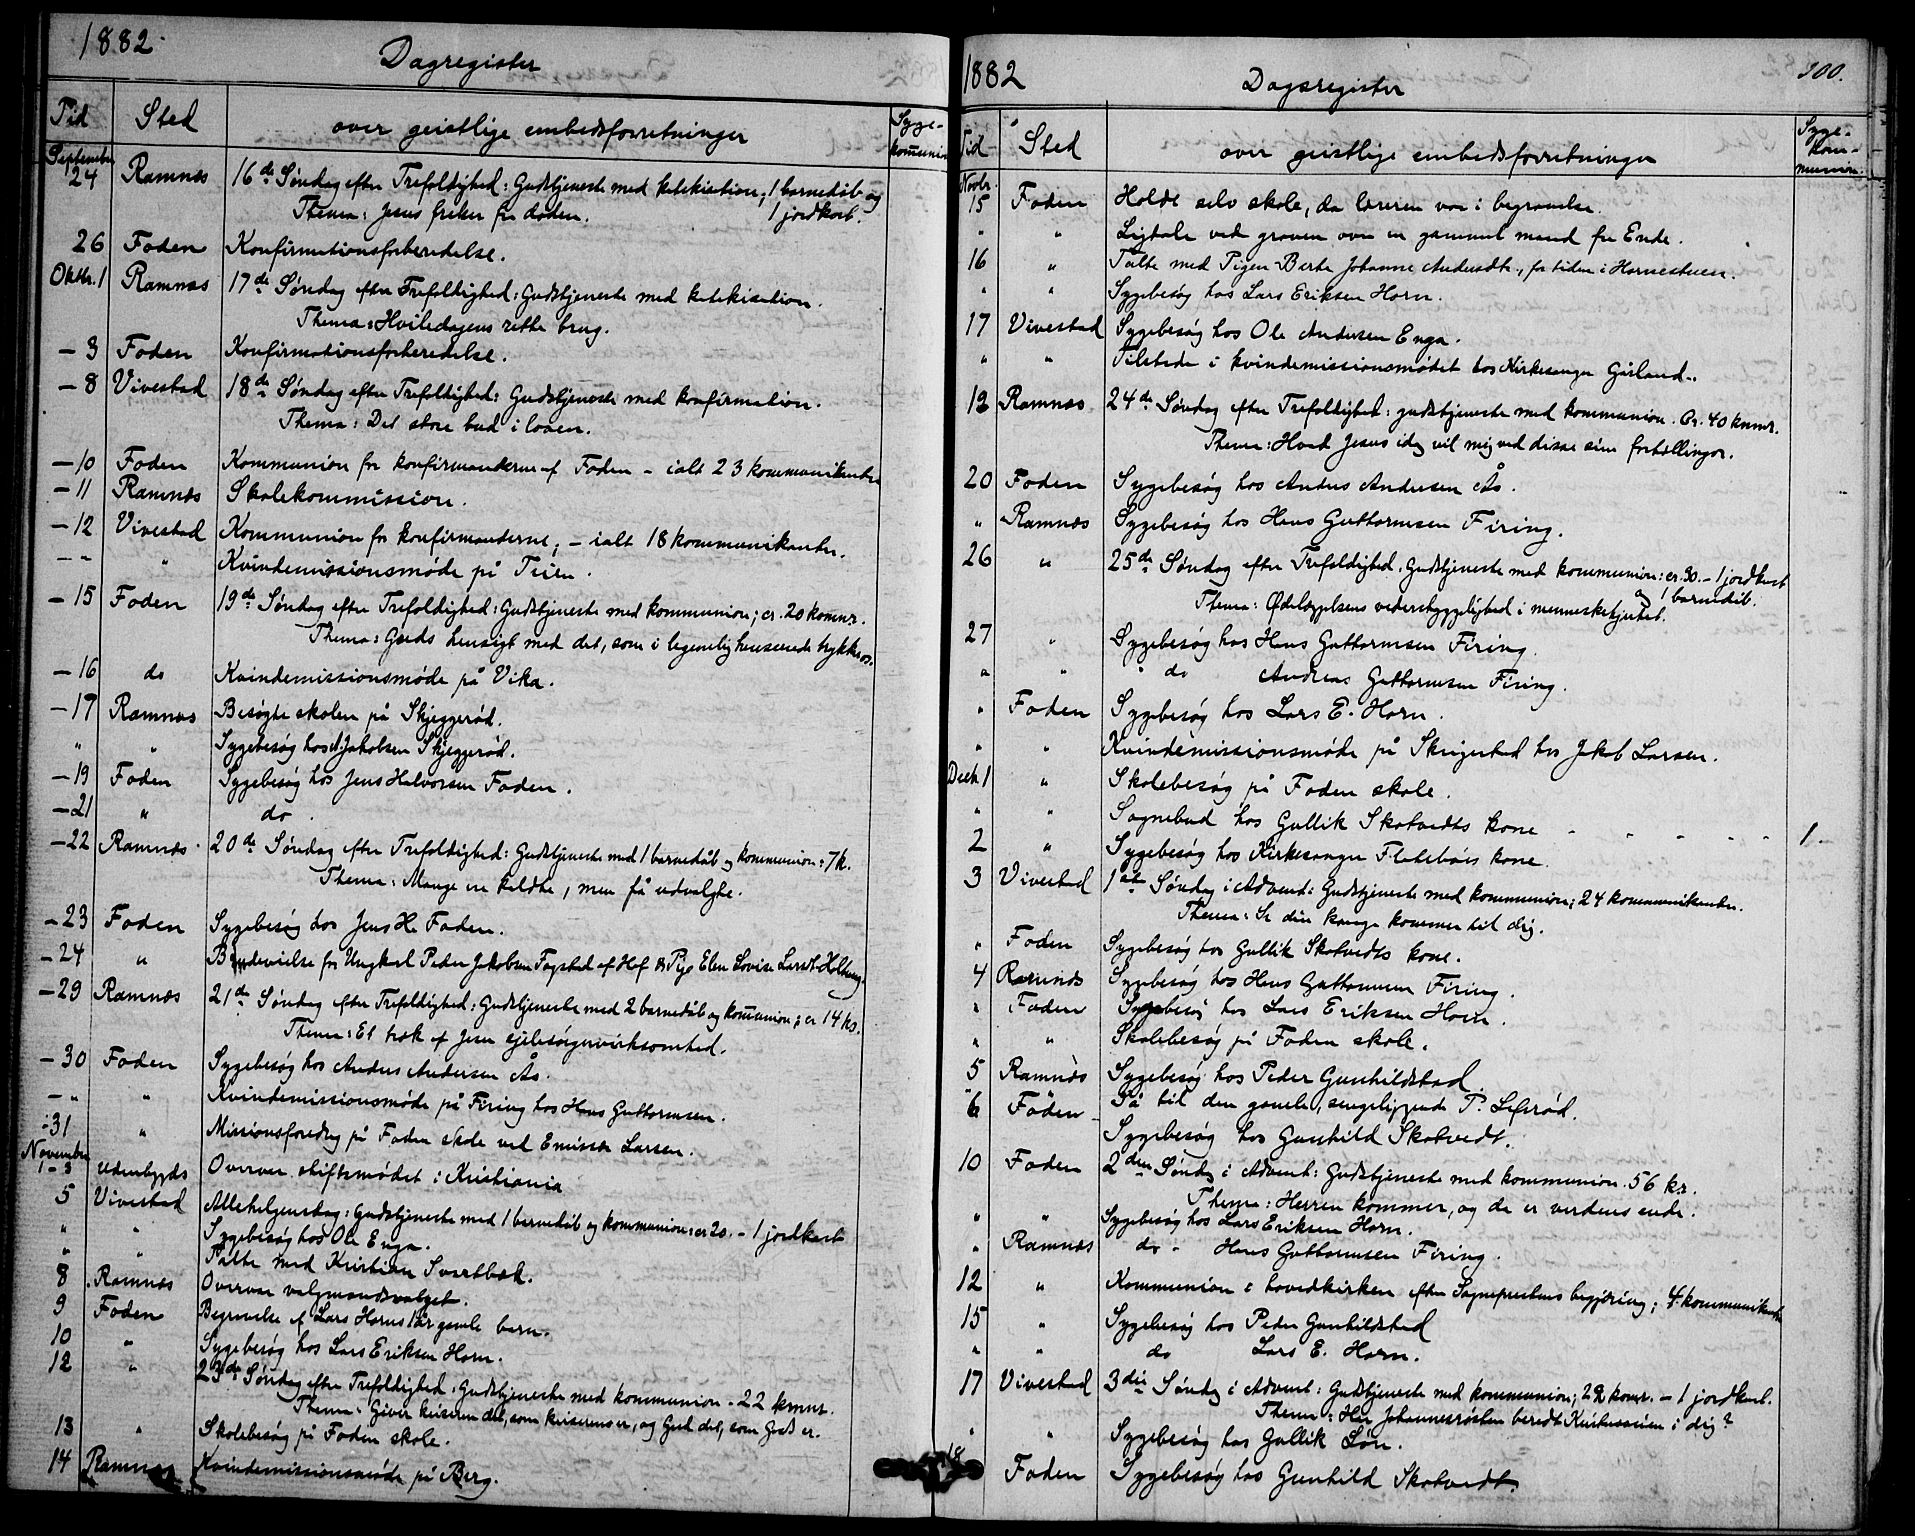 1882
Dagregister
Tid
Sted
over geistlige embedsforretninger
Syge-
komunion
September
24 Ramnæs 16de Søndag efter Trefoldighed: Gudstjeneste med katekisation; 1 barnedåb og
Thema: Jesus frelser fra døden. 1 jordkast.
26 Foden Konfirmationsforberedelse.
Oktbr. 1 Ramnæs 17de Søndag efter Trefoldighed: Gudstjeneste med katekisation.
Thema: Hviledagens rette brug.
- 3 Foden Konfirmationsforberedelse.
- 8 Vivestad 18de Søndag efter Trefoldighed: Gudstjeneste med konfirmation.
Thema: Det store bud i loven.
- 10 Foden Kommunion for konfirmanderne af Foden - ialt 23 kommunikanter
- 11 Ramnæs Skolekommission.
- 12 Vivestad Kommunion for konfirmanderne; - ialt 18 kommunikanter.
- - " Kvindemissionsmøde på
- 15 Foden 19de Søndag efter Trefoldighed: Gudstjeneste med kommunion; cr. 20 komnr.
Thema: Guds hensigt med det, som i legemlig henseende trykker os.
- 16 do Kvindemissionsmøde på Vika.
- 17 Ramnæs Besøgte skolen på Skjeggerød.
" " Sygebesøg hos A Jakobsen Skjeggerød.
- 19 Foden Sygebesøg hos Jens Halvorsen Foden.
- 21 " do.
- 22 Ramnæs 20de Søndag efter Trefoldighed: Gudstjeneste med 1 barnedåb og kommunion: 7 k.
Thema: Mange ere kaldte, men få udvalgte.
- 23 Foden Sygebesøg hos Jens H. Foden.
- 24 " Brudevielse for Ungkarl Peder Jakobsen Fogstad af Hof & Pige Elen Lovise Larsdt.
- 29 Ramnæs 21de Søndag efter Trefoldighed: Gudstjeneste med 2 barnedåb og komunion; cr 14 ko.
Thema: Et træk af Jesu sjælesørgervirksomhed.
- 30 Foden Sygebesøg hos Anders Andersen Ås.
- " " Kvindemissionsmøde på Firing hos Hans Guttormsen.
- 31 " Missionsforedrag på Foden skole ved Emissær Larsen.
November
1-3 udenbygds Overvar stiftsmødet i Kristiania
5 Vivestad Allehelgensdag: Gudstjeneste med 1 barnedåb og kommunion: cr 20. - 1 jordkast
" " Sygebesøg hos Ole Enga.
" " Talte med Kristian Svartbæk.
8 Ramnæs Overvar valgmandsvalget.
9 Foden Begravelse af Lars Horns 1 år gamle barn.
10 " Sygebesøg hos Lars Eriksen Horn.
12 " 23de Søndag efter Trefoldighed: Gudstjeneste med kommunion - 22 kmnr.
Thema: Giver keiseren det, som keiserens er, og Gud det, som Guds er.
13 " Skolebesøg på Foden skole.
14 Ramnæs Kvindemissionsmøde på Berg.
1882
Dagsregister
300.
Tid
Sted
over geistlige embedsforretninger
Syge-
kom-
munion
Novbr.
15 Foden Holdt selv skole, da læreren var i begravelse.
" " Ligtale ved graven over en gammel mand fra Ende.
16 " Talte med Pigen Berte Johanne Andersdtr., for tiden i Hornestuen.
" " Sygebesøg hos Lars Eriksen Horn.
17 Vivestad Sygebesøg hos Ole Andersen Enga.
" " Tilstede i kvindemissionsmødet hos Kirkesanger Gårland.
12 Ramnæs 24de Søndag efter Trefoldighed: gudstjeneste med kommunion. Cr. 40 kmnr.
Thema: Hvad Jesus idag vil mig ved disse sine fortællinger.
20 Foden Sygebesøg hos Anders Andersen Ås.
" Ramnæs Sygebesøg hos Hans Guttormsen Firing.
26 " 25de Søndag efter Trefoldighed. Gudstjeneste med kommunion: cr. 30. - 1 jordkast
og 1 barnedåb.
Thema: Ødelæggelsens vederstyggelighed i menneskehjertet.
27 " Sygebesøg hos Hans Guttormsen Firing.
" " do Andreas Guttormsen Firing.
" Foden Sygebesøg hos Lars E. Horn.
" " Kvindemissionsmøde på Skrigestad hos Jakob Larsen.
Decb. 1 " Skolebesøg på Foden skole.
" " Sognebud hos Gullik Skotvedts kone - - - - - 1.
2 " Sygebesøg hos Kirkesanger Flatebøs kone.
3 Vivestad 1ste Søndag i Advent: Gudstjeneste med kommunion; 24 kommunikanter.
Thema: Se din konge kommer til dig.
" Foden Sygebesøg hos Gullik Skotvedts kone.
4 Ramnæs Sygebesøg hos Hans Guttormsen Firing.
" Foden Sygebesøg hos Lars Eriksen Horn.
" " Skolebesøg på Foden skole.
5 Ramnæs Sygebesøg hos Peder Gunhildstad.
6 Foden Så til den gamle, sengeliggende P. Lefsrød.
Sygebesøg hos Gunhild Skotvedt.
10 Foden 2den Søndag i Advent: Gudstjeneste med kommunion. 56 kr.
Thema: Herren kommer, og da er verdens ende.
" " Sygebesøg hos Lars Eriksen Horn.
" Ramnæs do - Hans Guttormsen Firing.
12 " Kommunion i hovedkirken efter Sognepræstens begjæring; 4 kommunikanter
15 " Sygebesøg hos Peder Gunhildstad
" " do Lars E. Horn.
17 Vivestad 3die Søndag i Advent: Gudstjeneste med kommunion; 22 komr. - 1 jordkast.
Thema: Har Johannesrøsten beredt Kristusveien i dig?
" " Sygebesøg hos Gullik Løn.
18 Foden Sygebesøg hos Gunhild Skotvedt.